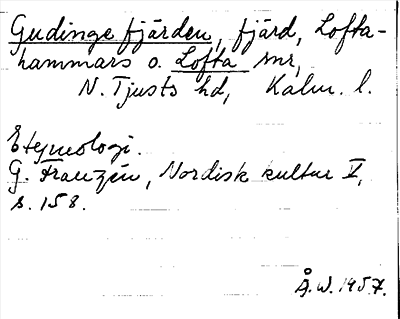 Gudinge fjärden, fjärd, Lofta-
hammars o. Lofta snr,
N. Tjusts hd, Kalm. l.
Etymologi.
G. Franzén, Nordisk kultur V,
s. 158.
Å. W. 1957.